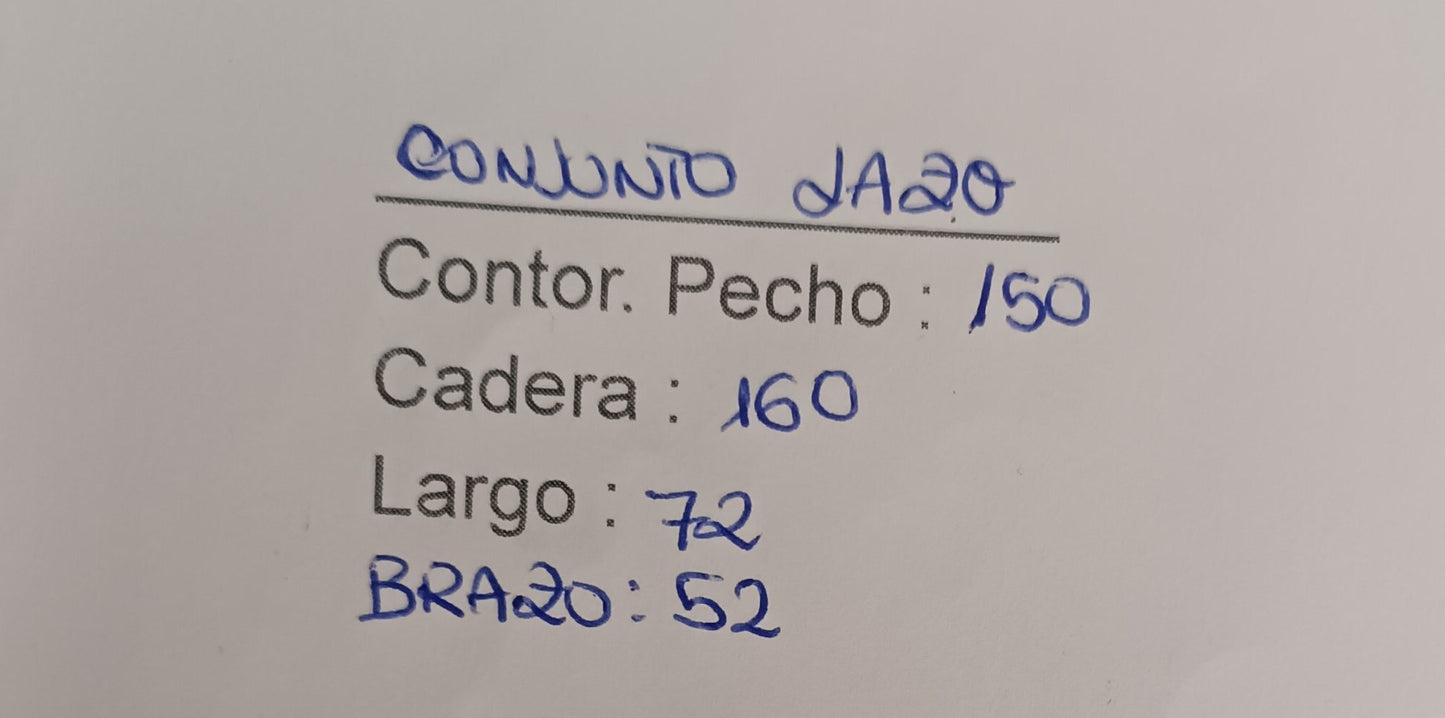 CONJUNTO LAZO
Contor. Pecho : 150
Cadera : 160
Largo : 72
BRAZO: 52